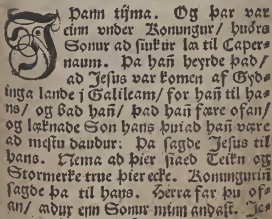 J Þann tijma. Og þar var
eirn vnder Konungur/ huørs
Sonur ad siukur læ til Caper-
naum. Þa hañ heyrde þad/
ad Jesus var komen af Gyd-
inga lande j Galileam/ for hañ til ha-
ns/ og bad hañ/ þad hañ være ofan/
og læknade Son hans þuiad hañ være
ad mestu daudur. Þa sagde Jesus til
hans. Nema ad þier siaed Teikn og
Stormerke true þier ecke. Konungurin
sagde þa til hans. Herra far þu of-
an/ ædur enn Sonur minn andast. Jes